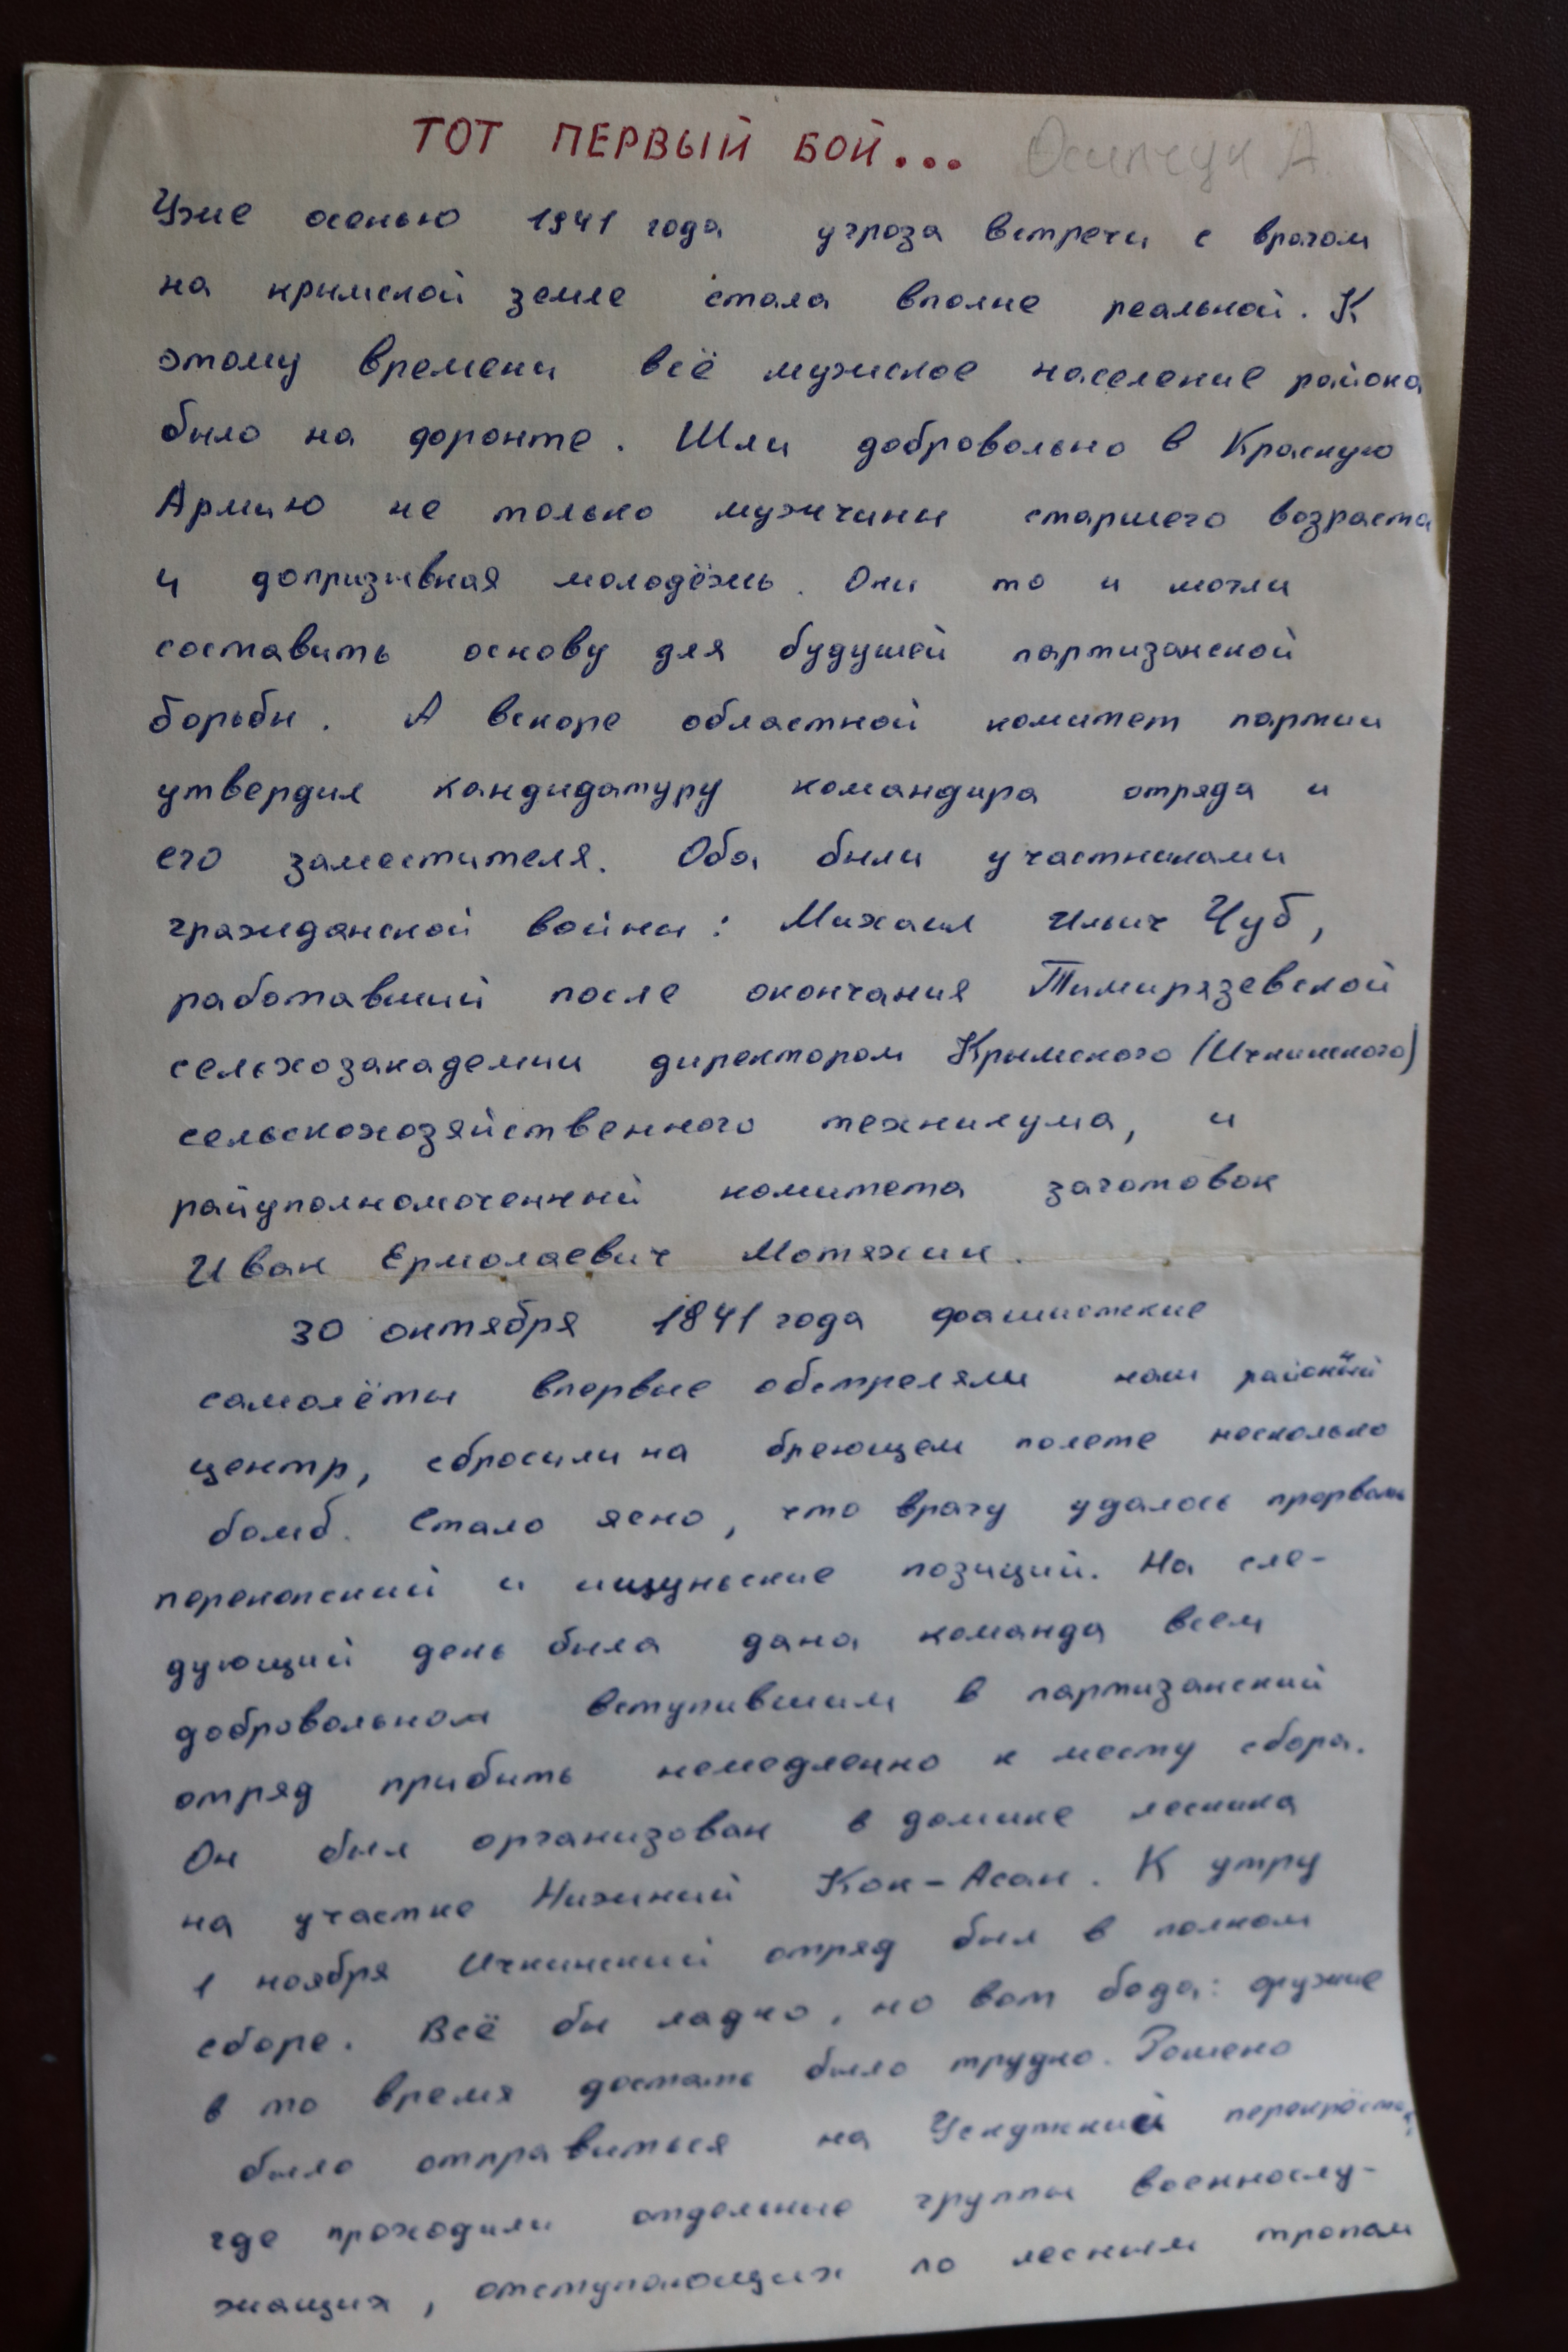 ТОТ ПЕРВЫЙ БОЙ... Осипчук А.
Уже осенью 1941 года угроза встречи с врагом
на крымской земле стала вполне реальной. К
этому времени всё мужское население района
было на форонте. Шли добровольно в Красную
Армию не только мужчины старшего возраста
и допризывная молодёжь. Они то и могли
составить основу для будушей партизанской
борьбы. А вскоре областной комитет партии
утвердил кандидатуру командира отряда и
его заместителя. Оба были участниками
гражданской войны: Михаил Ильич Чуб,
работавший после окончания Тимирязевской
сельхозакадемии директором Крымского (Ичкинского)
сельскохозяйственного техникума, и
райуполномоченный комитета заготовок
Иван Ермолаевич Мотяхин.
30 октября 1841 года фашистские
самолёты впервые обстреляли наш районый
центр, сбросили на бреющем полете несколько
бомб. Стало ясно, что врагу удалось прорвать
перекопский и ишуньские позиций. На сле-
дующий день была дана команда всем
добровольном вступившим в партизанский
отряд прибыть немедленно к месту сбора.
Он был организован в домике лесника
на участке Нижний Кок-Асан. К утру
1 ноября Ичкинский отряд был в полном
сборе. Всё бы ладно, но вот беда: оружие
в то время достать было трудно. Решено
было отправиться на Ускутский перекрёсток,
где проходили отдельные группы военнослу-
жащих, отступающих по лесным тропам